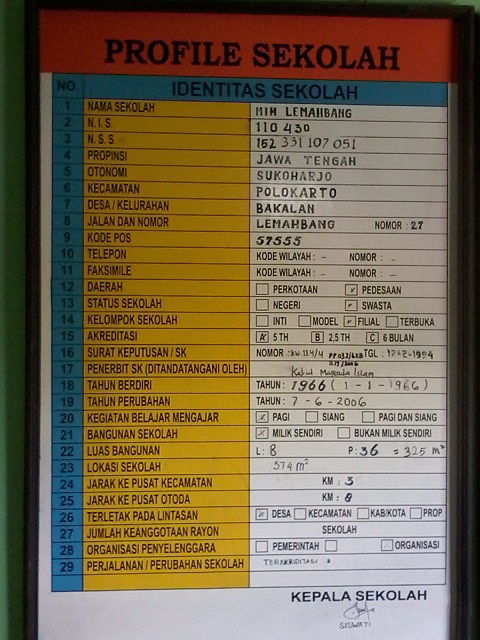 PROFILE SEKOLAH
NO. IDENTITAS SEKOLAH
1 NAMA SEKOLAH MIM LEMAHBANG
2 N. I. S. 110 430
3 N. S. S. 152 331 107 051
4 PROPINSI JAWA TENGAH
5 OTONOMI SUKOHARJO
6 KECAMATAN POLOKARTO
7 DESA / KELURAHAN BAKALAN
8 JALAN DAN NOMOR LEMAHBANG NOMOR : 27
9 KODE POS 57555
10 TELEPON KODE WILAYAH : - NOMOR : -
11 FAKSIMILE KODE WILAYAH : - NOMOR : -
12 DAERAH PERKOTAAN PEDESAAN
13 STATUS SEKOLAH NEGERI SWASTA
14 KELOMPOK SEKOLAH INTI MODEL FILIAL TERBUKA
15 AKREDITASI A 5 TH B 2,5 TH C 6 BULAN
16 SURAT KEPUTUSAN / SK NOMOR : TGL :
17 PENERBIT SK (DITANDATANGANI OLEH)
18 TAHUN BERDIRI TAHUN : 1966 ( 1 - 1 - 1966 )
19 TAHUN PERUBAHAN TAHUN : 7 - 6 - 2006
20 KEGIATAN BELAJAR MENGAJAR PAGI SIANG PAGI DAN SIANG
21 BANGUNAN SEKOLAH MILIK SENDIRI BUKAN MILIK SENDIRI
22 LUAS BANGUNAN L : 8 P : 36 = 325 m²
23 LOKASI SEKOLAH 374 m²
24 JARAK KE PUSAT KECAMATAN KM : 3
25 JARAK KE PUSAT OTODA KM : 8
26 TERLETAK PADA LINTASAN DESA KECAMATAN KAB/KOTA PROP
27 JUMLAH KEANGGOTAAN RAYON SEKOLAH
28 ORGANISASI PENYELENGGARA PEMERINTAH ORGANISASI
29 PERJALANAN / PERUBAHAN SEKOLAH TERAKREDITASI
KEPALA SEKOLAH
SISWATI